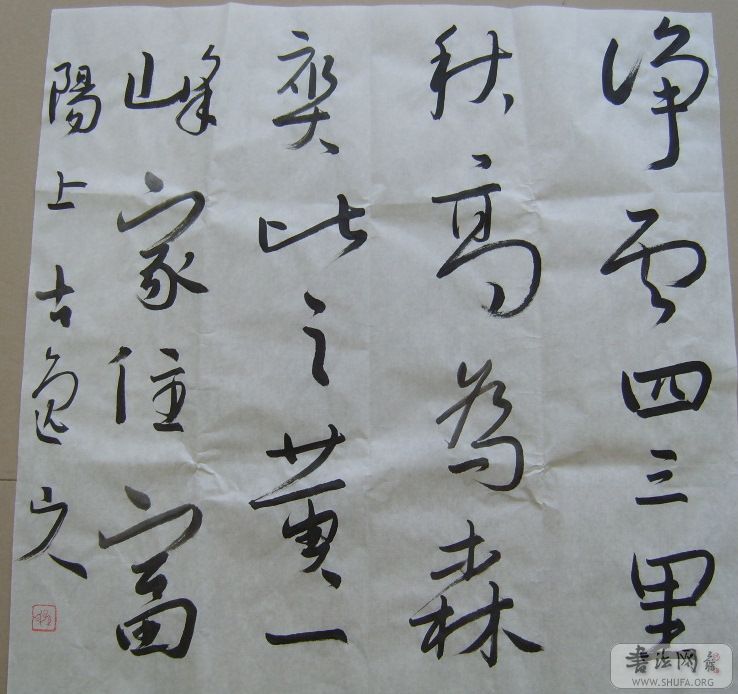 净云四三里
秋高為森
爽此之黄一
峰家住富
陽上 古逸山人
書法网
WWW.SHUFA.ORG